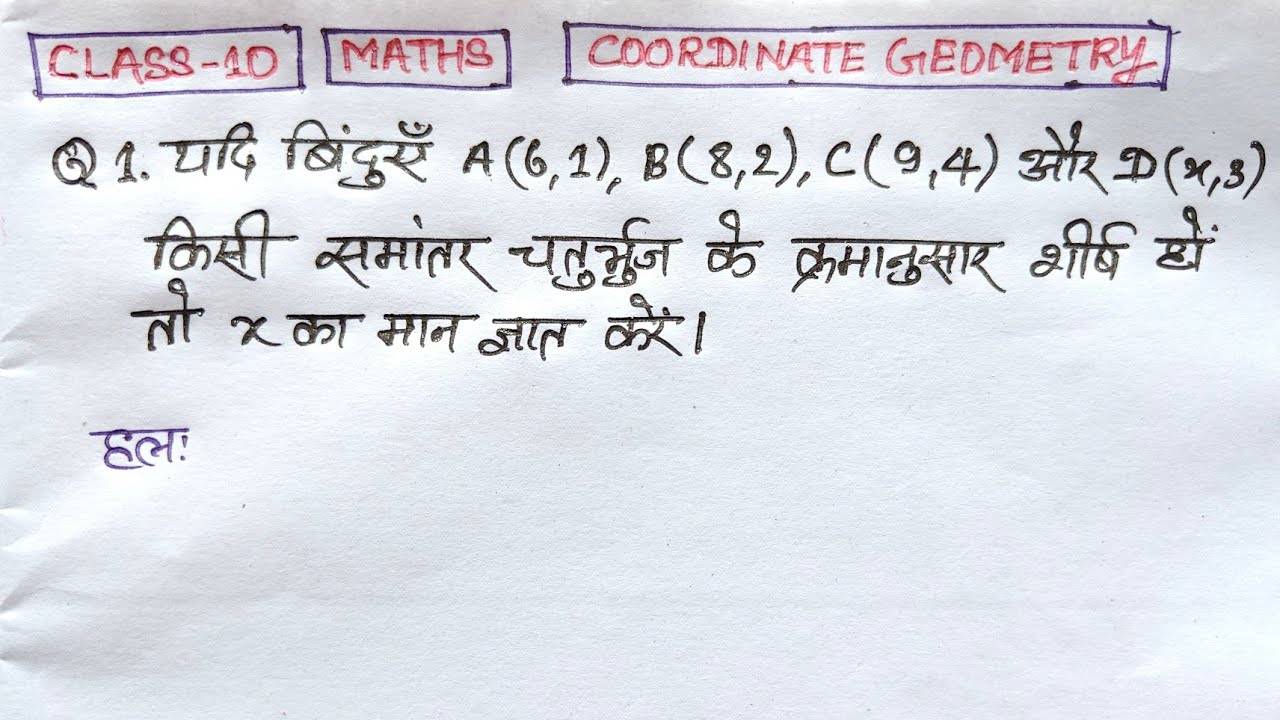 CLASS-10 MATHS COORDINATE GEOMETRY
Q 1. यदि बिंदुएँ A(6,1), B(8,2), C(9,4) और D(x,3)
किसी समांतर चतुर्भुज के क्रमानुसार शीर्ष हों
तो x का मान ज्ञात करें।
हलः